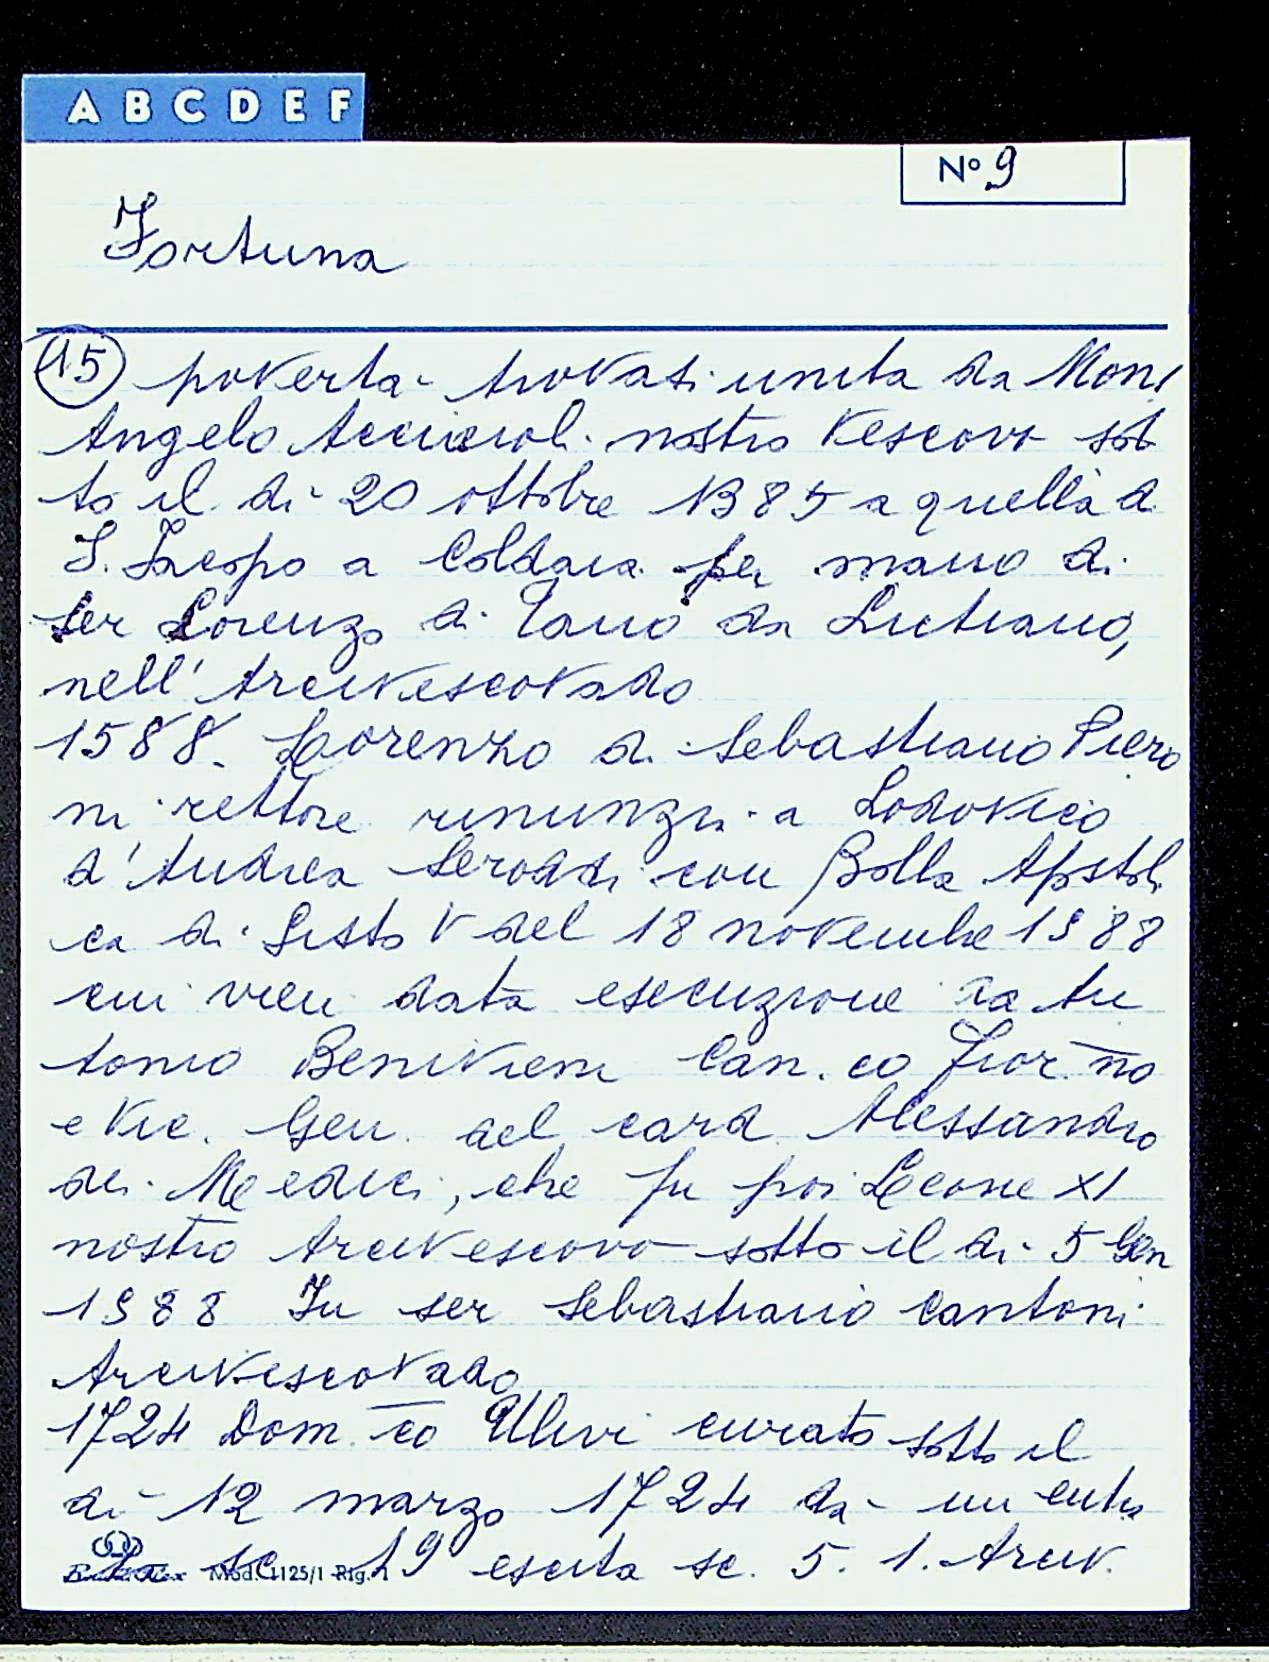 A B C D E F
Nº 9
Fortuna
15 povertà trovasi unita da Mons
Angelo Acciaioli nostro Vescovo sot
to il dì 20 ottobre 1385 a quella di
S. Jacopo a Coldaia per mano di
Ser Lorenzo di Tano da Lutiano,
nell' Arcivescovado
1588. Lorenzo di Sebastiano Piero
ni rettore rinunzia a Lodovico
d'Andrea Seroddi con Bolla Apstoli
ca di Sisto V del 18 novembre 1588
cui vien data esecuzione da An
tonio Benivieni Can.co Fior.no
e Vic. Gen. del card. Alessandro
dei Medici, che fu poi Leone XI
nostro Arcivescovo sotto il dì 5 Gen
1588 In ser Sebastiano Cantoni
Arcivescovado
1724 Dom.co Ulivi curato sotto il
dì 12 marzo 1724 dà un entra
ta sc 19 escita sc. 5. 1. Arciv.
Mod. 1125/1 Rig. 1